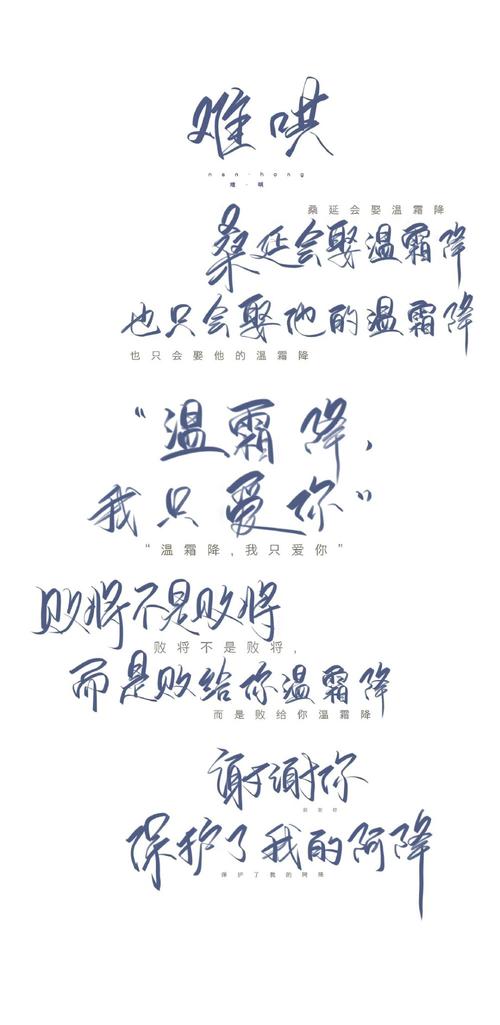 难哄
nan·hong
难·哄
桑延会娶温霜降
桑延会娶温霜降
也只会娶他的温霜降
也只会娶他的溫霜降
“温霜降，
我只爱你”
“溫霜降，我只爱你”
败将不是败将
败将不是败将，
而是败给你温霜降
而是败给你溫霜降
谢谢你
保护了我的阿降
保护了我的阿降